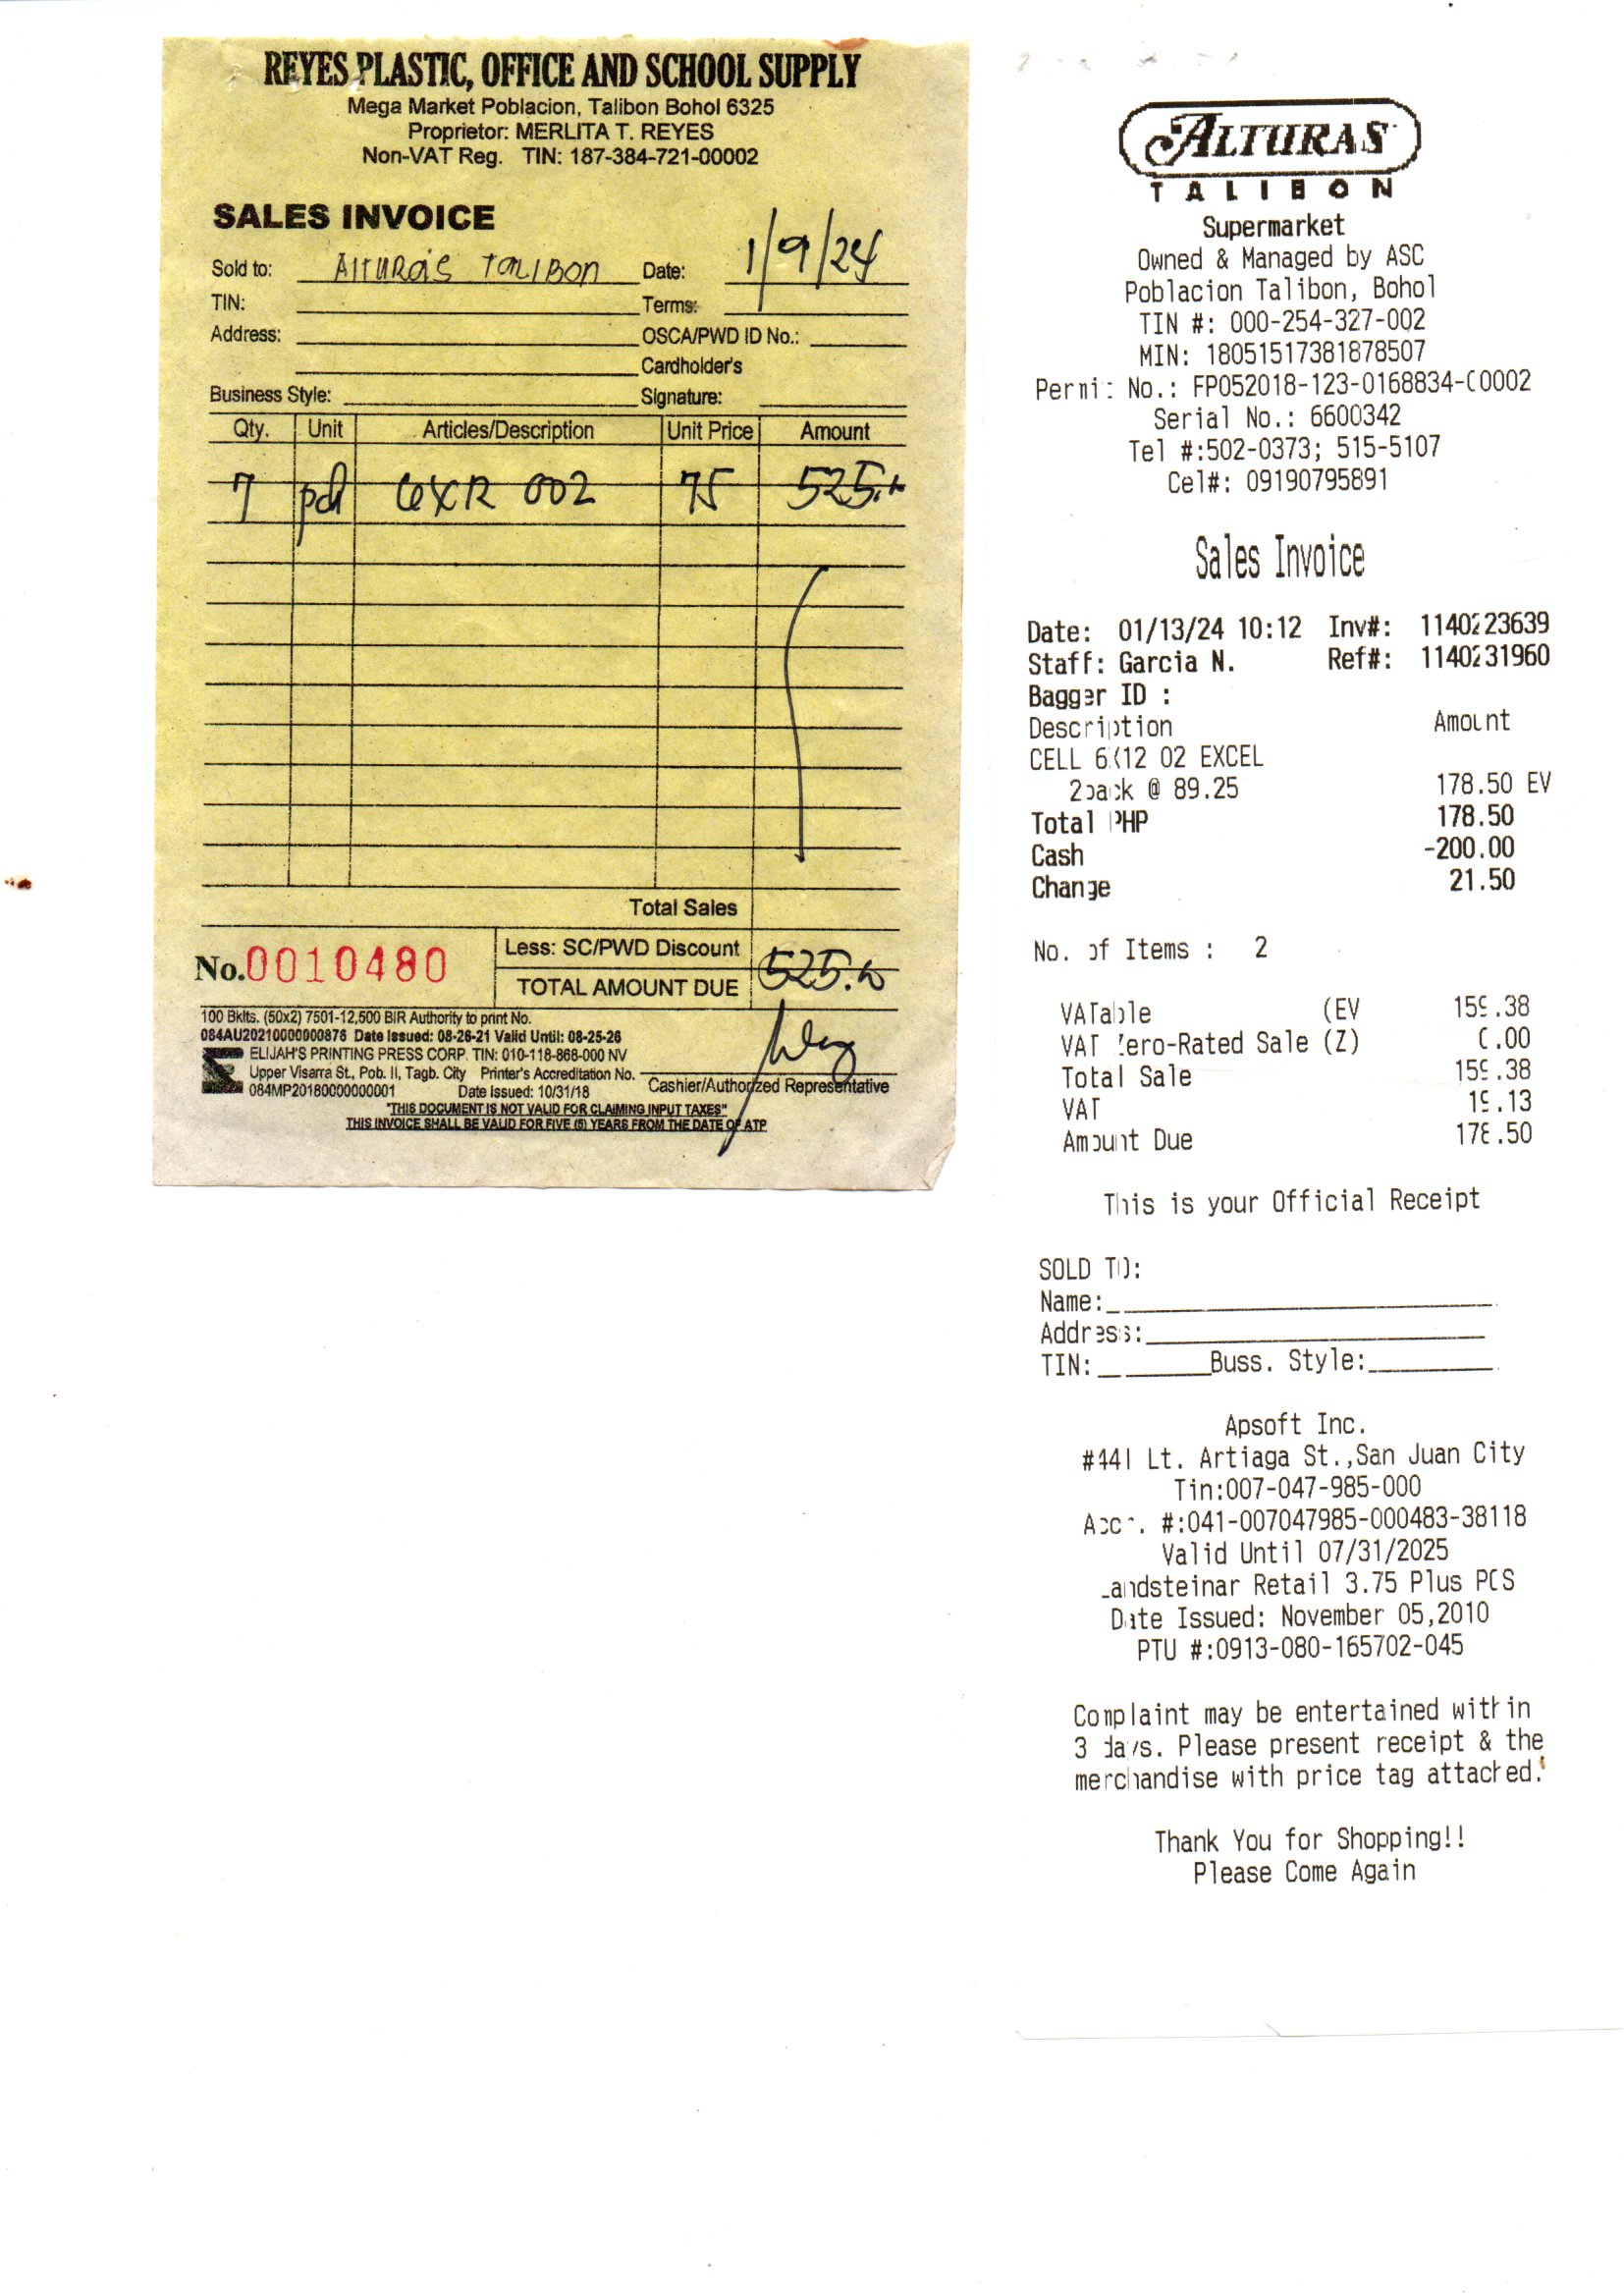 REYES PLASTIC, OFFICE AND SCHOOL SUPPLY
Mega Market Poblacion, Talibon Bohol 6325
Proprietor: MERLITA T. REYES
Non-VAT Reg. TIN: 187-384-721-00002
SALES INVOICE
Sold to: Alturas Talibon Date: 1/9/24
TIN: Terms:
Address: OSCA/PWD ID No.:
Cardholder's
Business Style: Signature:
Qty. Unit Articles/Description Unit Price Amount
7 002 75 525.
Total Sales
Less: SC/PWD Discount
No. 0010480
TOTAL AMOUNT DUE 525.
100 Bklts. (50x2) 7501-12,500 BIR Authority to print No.
084AU20210000000876 Date Issued: 08-26-21 Valid Until: 08-25-26
ELIJAH'S PRINTING PRESS CORP. TIN: 010-118-868-000 NV
Upper Visarra St., Pob. II, Tagb. City Printer's Accreditation No.
084MP20180000000001 Date Issued: 10/31/18
Cashier/Authorized Representative
"THIS DOCUMENT IS NOT VALID FOR CLAIMING INPUT TAXES"
THIS INVOICE SHALL BE VALID FOR FIVE (5) YEARS FROM THE DATE OF ATP
ALTURAS
TALIBON
Supermarket
Owned & Managed by ASC
Poblacion Talibon, Bohol
TIN #: 000-254-327-002
MIN: 18051517381878507
Permit No.: FP052018-123-0168834-00002
Serial No.: 6600342
Tel #:502-0373; 515-5107
Cel#: 09190795891
Sales Invoice
Date: 01/13/24 10:12 Inv#: 1140223639
Staff: Garcia N. Ref#: 1140231960
Bagger ID :
Description Amount
CELL 6X12 02 EXCEL
2pack @ 89.25 178.50 EV
Total PHP 178.50
Cash -200.00
Change 21.50
No. of Items : 2
VATable (EV 159.38
VAT Zero-Rated Sale (Z) 0.00
Total Sale 159.38
VAT 19.13
Amount Due 178.50
This is your Official Receipt
SOLD TO:
Name:
Address:
TIN: Buss. Style:
Apsoft Inc.
#441 Lt. Artiaga St.,San Juan City
Tin:007-047-985-000
Accr. #:041-007047985-000483-38118
Valid Until 07/31/2025
Landsteinar Retail 3.75 Plus POS
Date Issued: November 05,2010
PTU #:0913-080-165702-045
Complaint may be entertained within
3 days. Please present receipt & the
merchandise with price tag attached.
Thank You for Shopping!!
Please Come Again